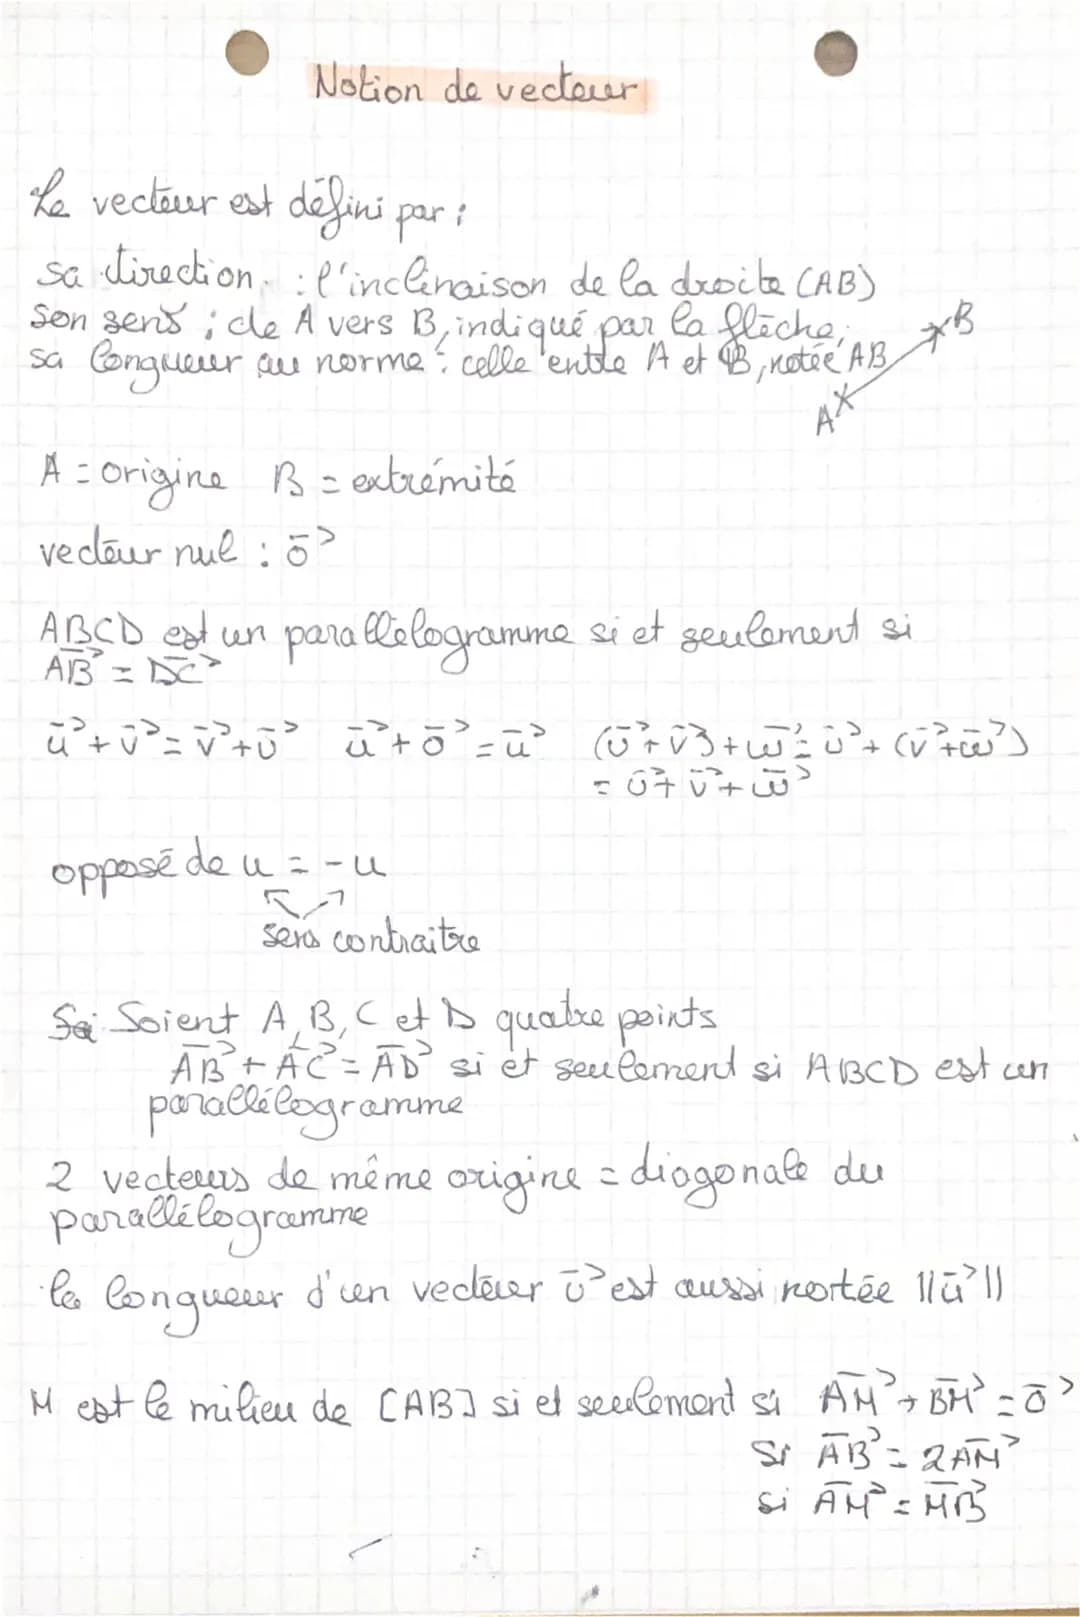 Notion de vecteur
Le vecteur est défini par :
sa direction : l'inclinaison de la droite (AB)
Son sens ; de A vers B, indiqué par la flèche,
sa longueur ou norme : celle entre A et B, notée AB
B
A
A = origine B = extrémité
vecteur nul : 0⃗
ABCD est un parallélogramme si et seulement si
AB⃗ = DC⃗
u⃗ + v⃗ = v⃗ + u⃗ u⃗ + 0⃗ = u⃗ (u⃗ + v⃗) + w⃗ = u⃗ + (v⃗ + w⃗)
= u⃗ + v⃗ + w⃗
opposé de u = -u
sens contraitre
Soient A, B, C et D quatre points
AB⃗ + AC⃗ = AD⃗ si et seulement si ABCD est un
parallélogramme
2 vecteurs de même origine = diagonale du
parallélogramme
la longueur d'un vecteur u⃗ est aussi nortée ||u⃗||
M est le milieu de [AB] si et seulement si AM⃗ + BM⃗ = 0⃗
si AB⃗ = 2AM⃗
si AM⃗ = MB⃗